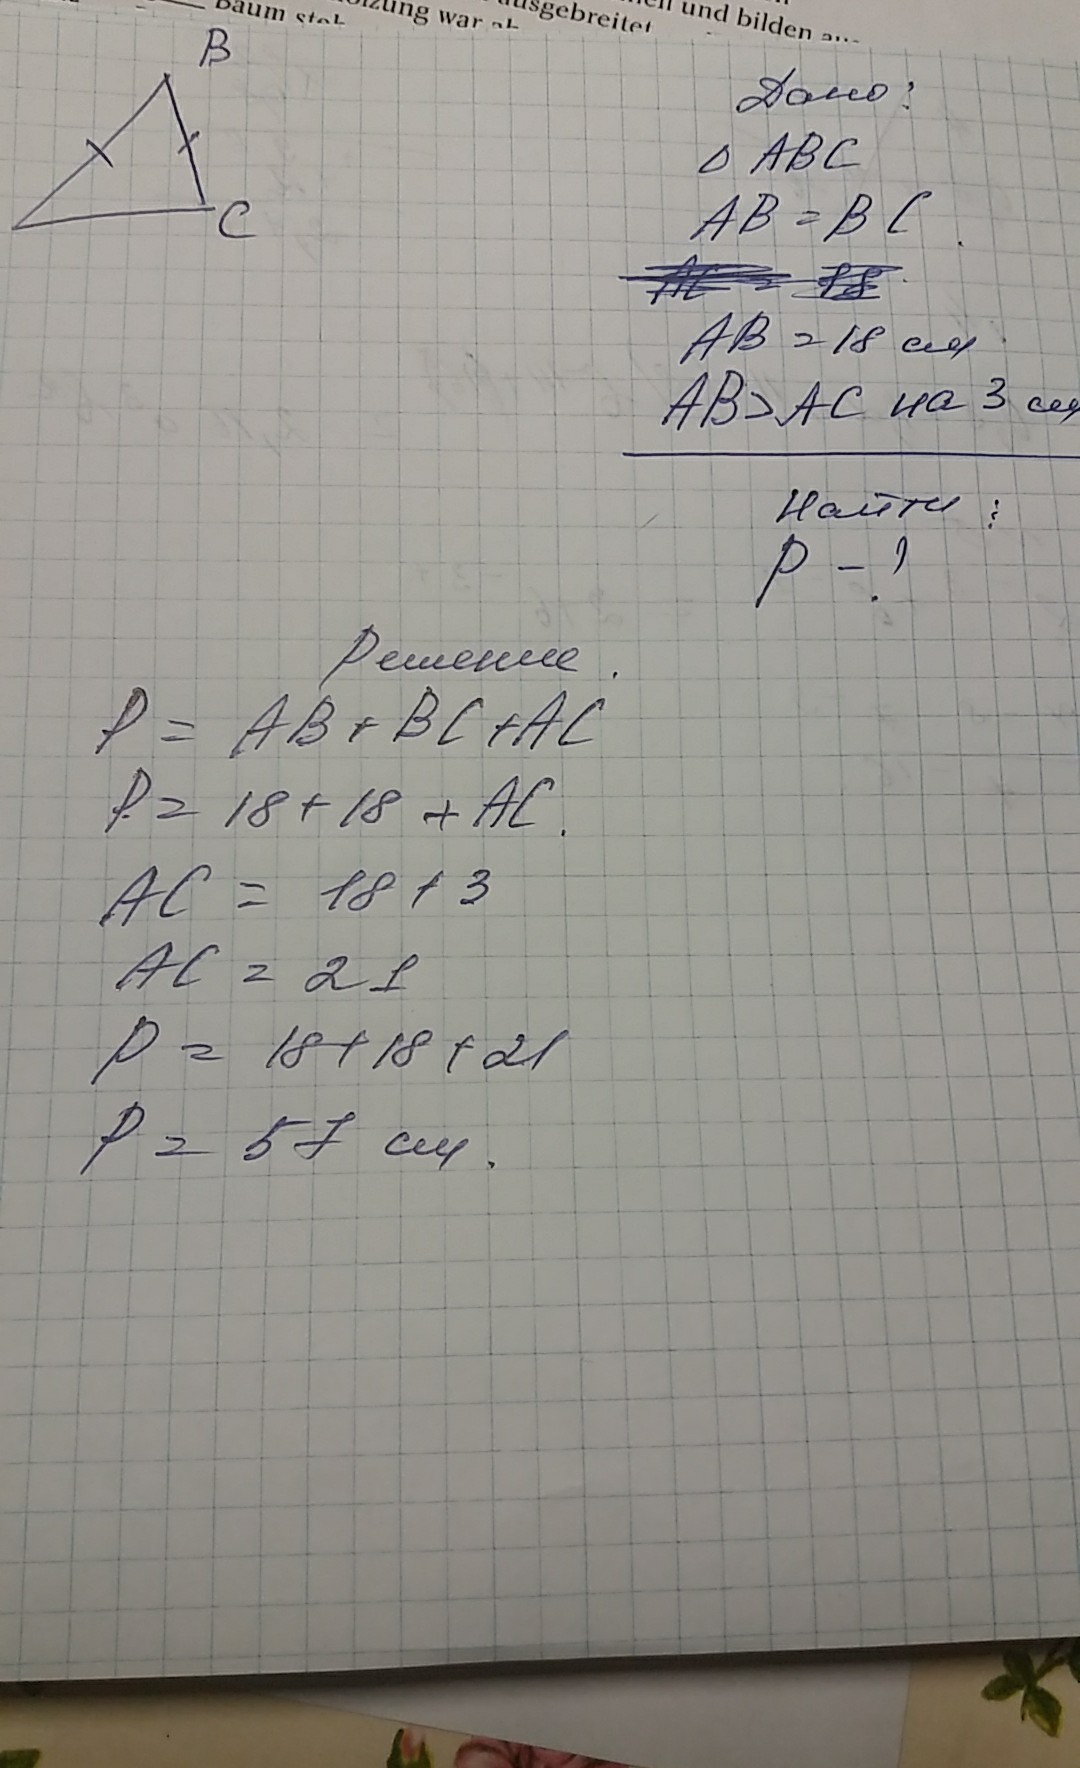 Baum
zung war
ausgebreitet
und bilden
B
C
Дано:
△ ABC
AB = BC.
AC = 18
AB = 18 см
AB > AC на 3 см
Найти:
P - ?
Решение.
P = AB + BC + AC
P = 18 + 18 + AC.
AC = 18 + 3
AC = 21
P = 18 + 18 + 21
P = 57 см.